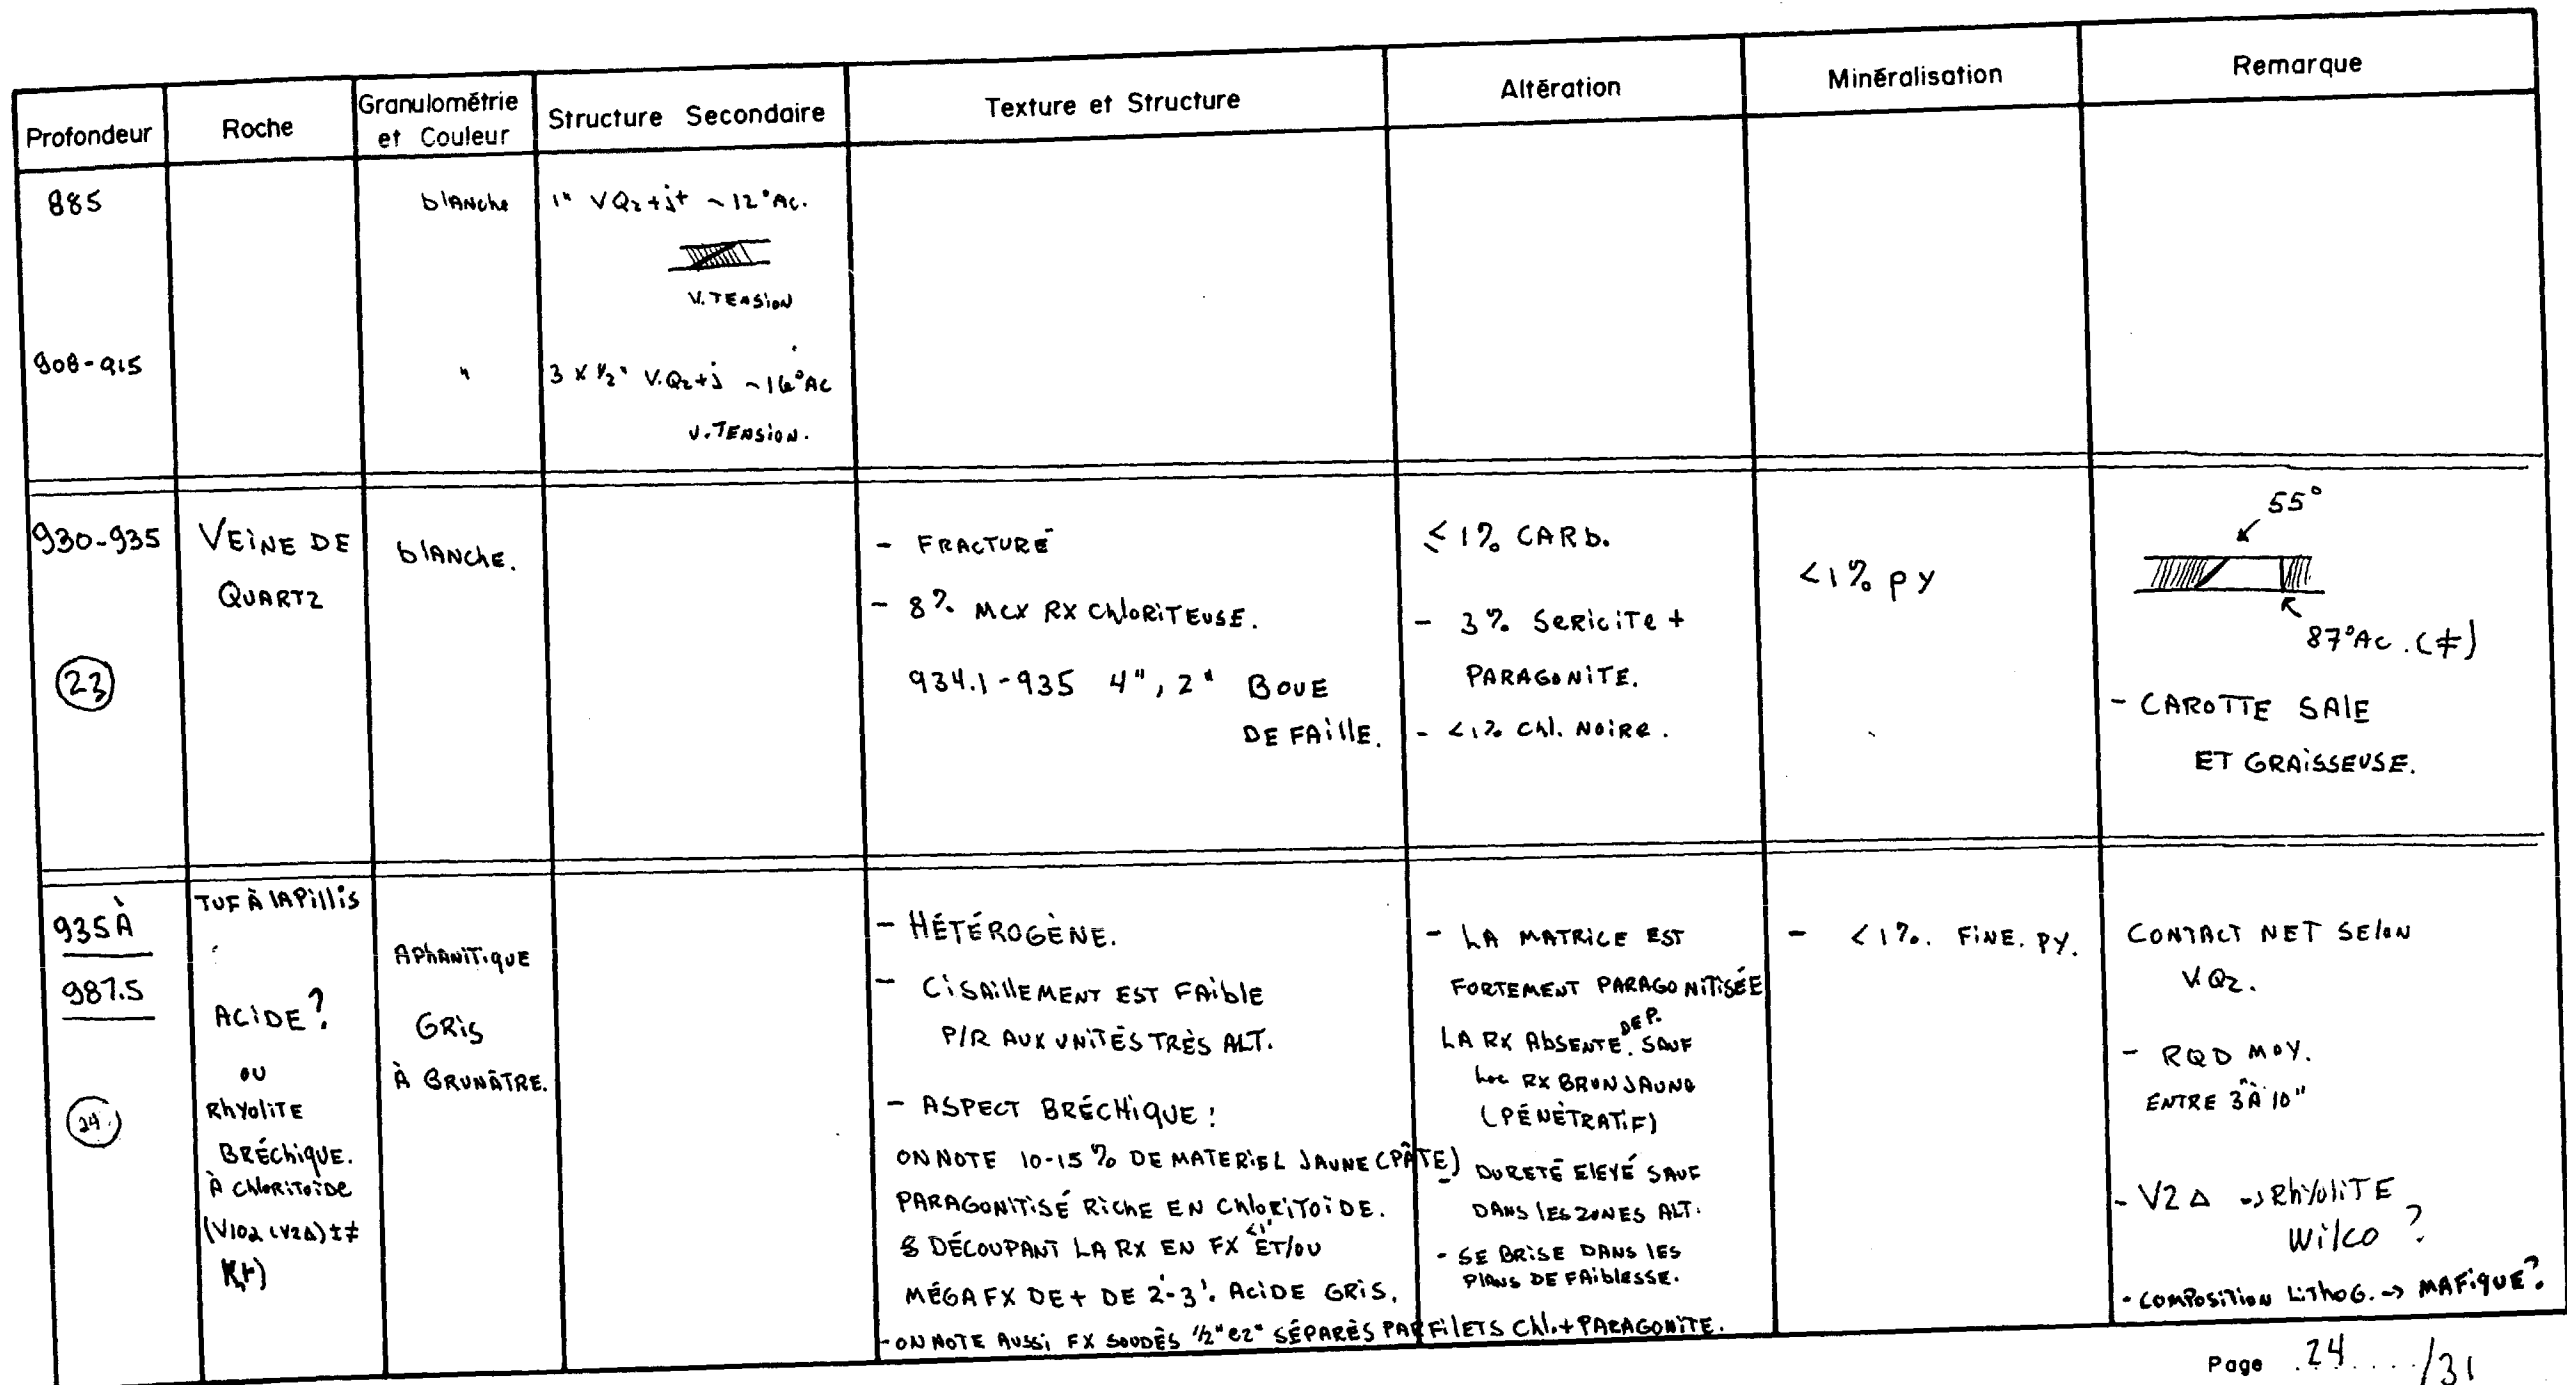 Profondeur
Roche
Granulométrie
et Couleur
Structure Secondaire
Texture et Structure
Altération
Minéralisation
Remarque
885
blANche
1" VQz+j+ ~12°Ac.
V. TENSION
908-915
"
3 X 1/2" V.Qz+j ~16°AC
V. TENSION.
930-935
VEINE DE
QUARTZ
(23)
blANchE.
- FRACTURÉ
- 8% MCX RX ChloRiTEUSE.
934.1-935 4", 2" BOUE
DE FAillE.
≤1% CARb.
- 3% SeRiCiTe +
PARAGONiTE.
- <1% Chl. NOiRe.
<1% PY
55°
87°Ac. (≠)
- CAROTTE SAlE
ET GRAiSSEUSE.
935 À
987.5
(24)
TUF À lAPillis
ACiDE?
OU
RhYOliTE
BRÉChiqUE.
À ChloRiToïDe
(V10a (V2Δ) ±≠
APhANiTiqUE
GRiS
À BRUNÂTRE.
- HÉTÉROGÈNE.
- CiSAillEMENT EST FAiblE
P/R AUX UNiTÉS TRÈS ALT.
- ASPECT BRÉCHiqUE :
ON NOTE 10-15% DE MATERiEL JAUNE (PÂTE)
PARAGONiTiSÉ RiChE EN ChloRiToïDE.
& DÉCOUPANT LA RX EN FX <1' ET/OU
MÉGA FX DE + DE 2'-3'. ACiDE GRiS.
- ON NOTE AUSSi FX SOUDÉS 1/2" @2" SÉPARÉS PAR FilETS Chl.+PARAGONiTE.
- LA MATRiCE EST
FORTEMENT PARAGONiTiSÉE
LA RX AbSENTE. DEP. SAUF
Loc RX BRUN JAUNE
(PÉNÉTRATiF)
- DURETÉ ElEVÉ SAUF
DANS lES ZONES ALT.
- SE BRiSE DANS lES
PlANS DE FAiblESSE.
- <1%. FiNE. PY.
CONTACT NET SElON
V.Qz.
- RQD MOY.
ENTRE 3 À 10"
- V2 Δ -> RhYOliTE
Wilco ?
- COMPOSiTION LiThoG. -> MAFiqUE?
Page 24 /31